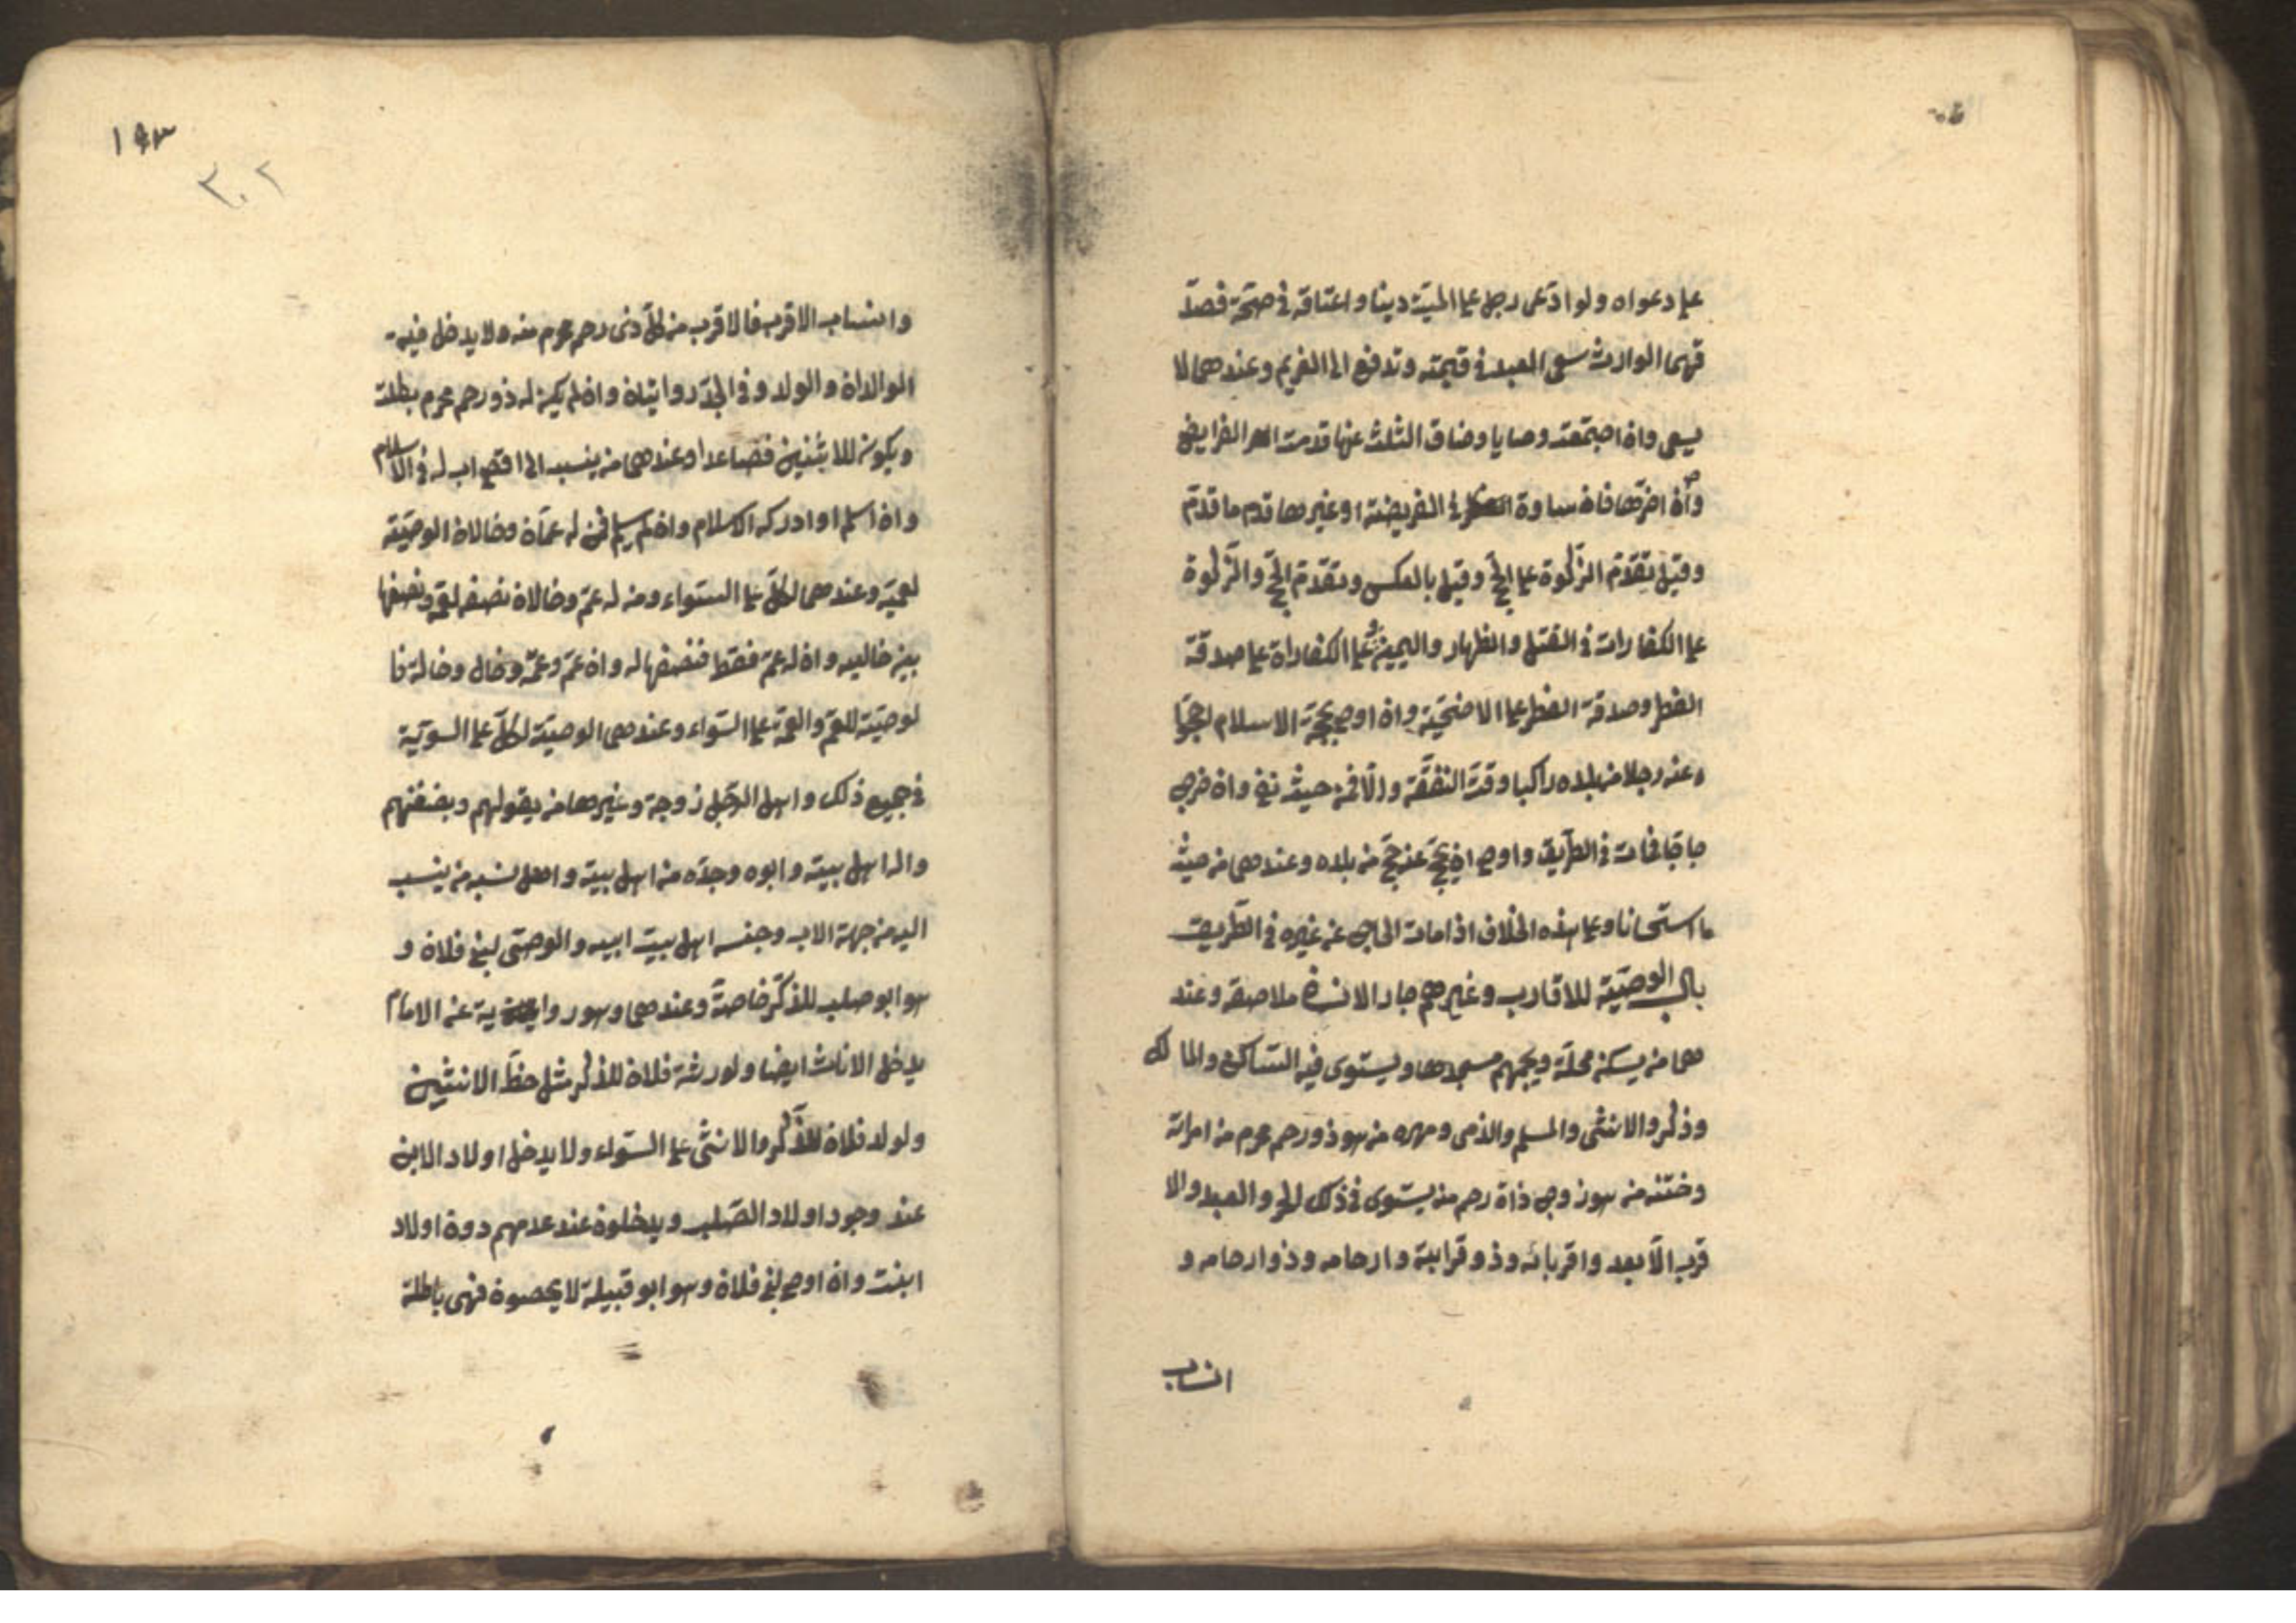 علي دعواه ولو ادّعى رجل على الميّت دينا واعتاقه في صحّة فصدّ
قهما الوارث سعى العبد في قيمته وتدفع الى الغريم وعندهما لا
يسعى واذا اجتمعت وصايا وضاق الثلث عنها قدمت الفرايض
وان اخرها فان ساوة في الفريضة او غيرها قدم ما قدّم
وقيل تقدّم الزّكوة على الحجّ وقيل بالعكس وتقدّم الحجّ والزّكوة
على الكفارات في القتل والظهار واليمين والكفاراة على صدقة
الفطر وصدقة الفطر على الاضحيّة وان اوصى بحجّة الاسلام احجّوا
عنه رجلا من بلده راكبا وقت النفقة والّا فمن حيث تفي وان خرج
حاجّا فمات في الطّريق واوصى ان يحجّ عنه حجّ من بلده وعندهما من حيث
مات استحسانا وعلى هذه الخلاف اذا مات الحاج عن غيره في الطّريق
باب الوصيّة للاقارب وغيرهم جار الانسان ملاصقه وعند
هما من يسكن محلّة ويجمهم مسجدها ويستوى فيه السّاكن والمالك
وذكر والانثى والمسلم والذمى وصهره من هو ذو رحم محرم من امراته
وختنه من هو زوج ذاة رحم منه يستوى في ذلك الحر والعبد والا
قرب الّا بعد واقربائه وذو قرابة وارحامه وذو ارحامه و
انساب
١٩٣
٣٠٢
وانساب الاقرب فالاقرب من كلّ ذى رحم محرم منه ولا يدخل فيه
الوالدان والولد وفي الجدّ روايتان وان لم يكن له ذو رحم محرم بطلت
ويكون للاثنين فصاعدا وعندهما من ينسب الى اقصى اب له في الاسلام
وان اسلم او ادركه الاسلام وان لم يسلم فمن له عمّان وخالان الوصيّة
لعميّه وعندهما لكلّ على السّواء ومن له عمّ وخالان نصفه لعمّه ونصفها
بين خاليه وان له عمّ فقط فنصفها له وان عمّ وعمّة وخال وخالة فا
لوصيّة للعمّ والعمّة على السّواء وعندهما الوصيّة لكلّ على السّويّة
في جميع ذلك واهل الرّجل زوجة وغيرهما من يقولهم وبضفتهم
واله اهل بيته وابوه وجدّه من اهل بيته واهل نسبه من ينسب
اليه من جهة الاب وجنسه اهل بيت ابيه والوصّى لبنى فلان و
هو ابو صلب للذّكر خاصّة وعندهما وهو رواية عن الامام
يدخل الاناث ايضا ولورثة فلان للذّكر مثل حظّ الانثيين
ولولد فلان للذّكر والانثى على السّواء ولا يدخل اولاد الابن
عند وجود اولاد الصّلب ويدخلون عند عدمهم دون اولاد
ابنت وان اوصى لبنى فلان وهو ابو قبيلة لا يحصون فهى باطلة